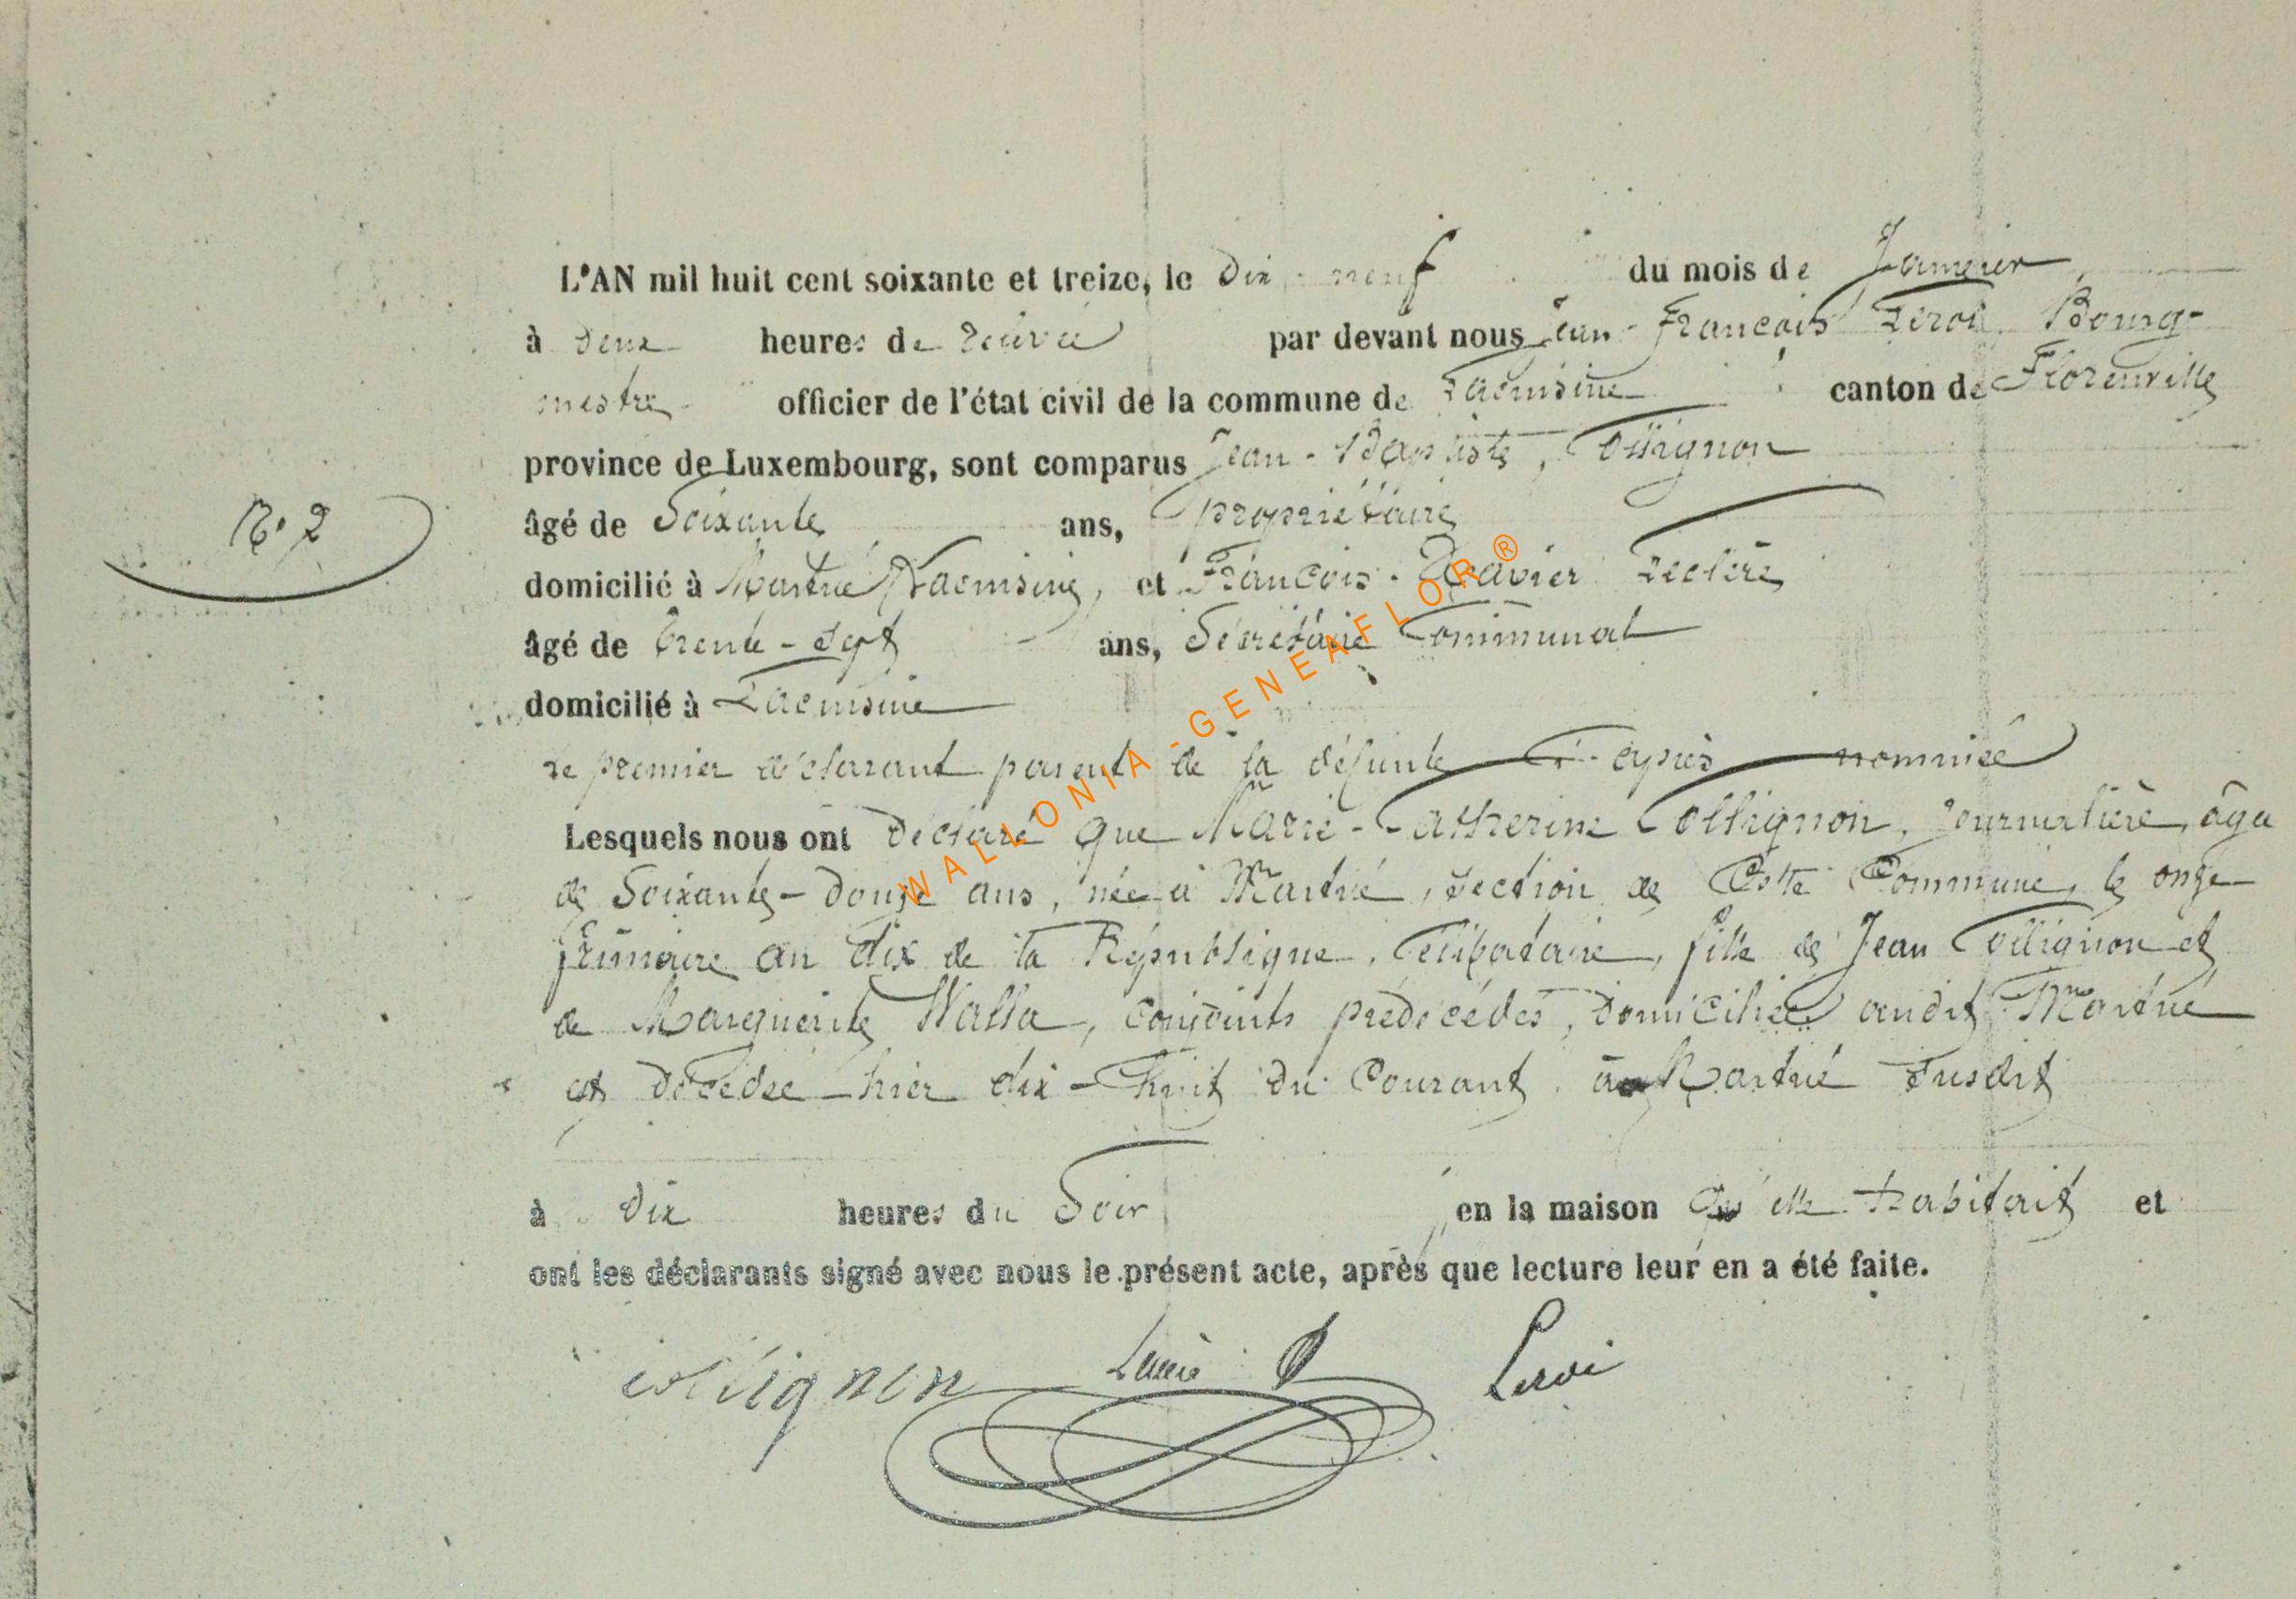 L'AN mil huit cent soixante et treize, le dix-neuf du mois de Janvier
à deux heures de relevée par devant nous Jean-François Leroi, Bourg-
mestre officier de l'état civil de la commune de Lacuisine canton de Florenville
province de Luxembourg, sont comparus Jean-Baptiste, Collignon
N° 2
âgé de Soixante ans, propriétaire
domicilié à Martué (Lacuisine), et François-Xavier Leclère
âgé de trente-sept ans, Secrétaire Communal
domicilié à Lacuisine
le premier déclarant parent de la défunte ci-après nommée
Lesquels nous ont déclaré que Marie-Catherine Collignon, journalière, âgée
de Soixante-douze ans, née à Martué, section de Cette Commune, le onze
frimaire an dix de la République, Célibataire, fille de Jean Collignon et
de Marguerite Walla, conjoints prédécédés, domiciliée audit Martué
est décédée hier dix-huit du Courant à Martué susdit
à dix heures du Soir en la maison qu'elle habitait et
ont les déclarants signé avec nous le présent acte, après que lecture leur en a été faite.
collignon Leclère Leroi
WALLONIA-GENEAFLOR®